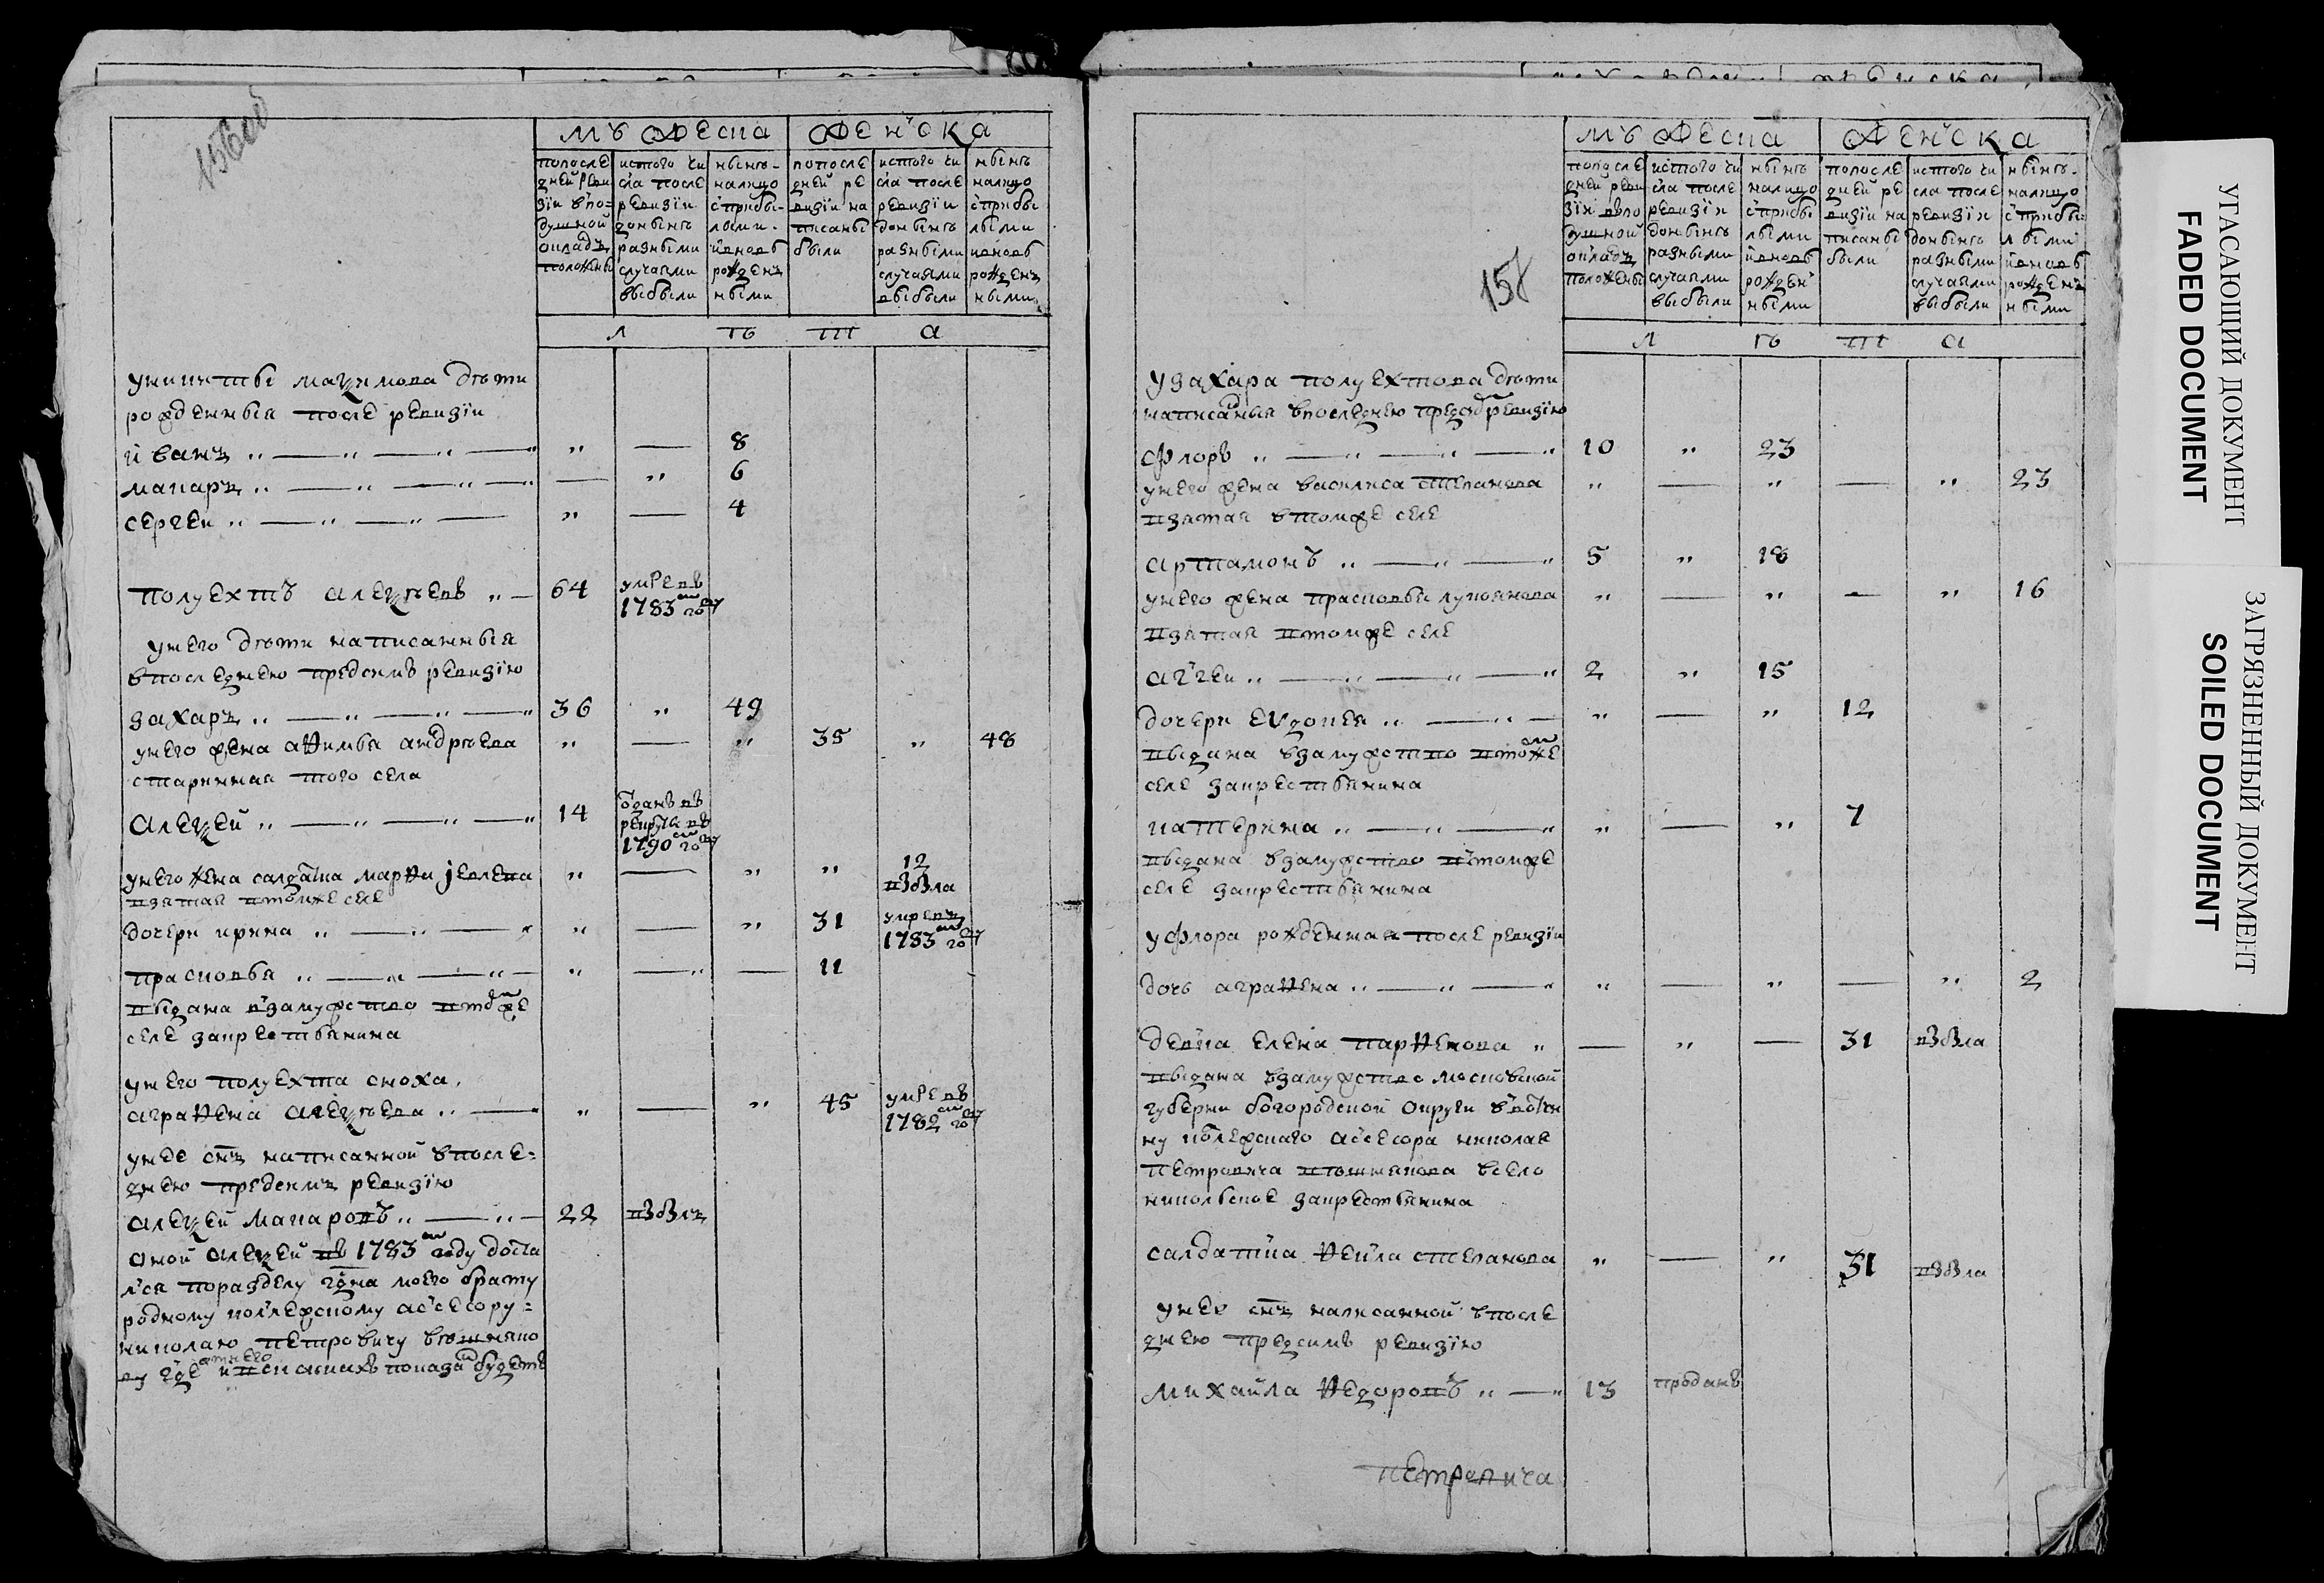 156об
мужеска женска
попосле дней реви зiи впо= душной окладъ положены
истого чи сла после ревизiи донынѣ разными случаями выбыли
нынѣ- налицо сприбы- лыми- ивновь рожденъ ными
попосле дней ре визiи на писаны были
истого чи сла после ревизiи донынѣ разными случаями выбыли
нынѣ налицо сприбы лыми ивновь рожденъ ными
л ѣ т а
уникиты маѯимова дѣти
рожденныя после ревизiи
иванъ " — " — " — " " — 8
макаръ " — " — " — " — " 6
сергеи " — " — " — " — 4
полуехтъ алеѯѣевъ " — 64 умревъ
1783 году
унего дѣти написанныя
впоследнею предсимъ ревизiю
захаръ " — " — " — " 36 " 49
унего жена афимья андрѣева " — " 35 " 48
старинная того села
Алеѯей " — " — " — " 14 отданъ въ
рекруты въ
1790 году
унего жена салдатка марфа иевлева " — " " 12
взятая втомже селе взѣла
дочери ирина " — " — " " — " 31 умревъ
1783 году
прасковья " — " — " — " — " — 11
выдана взамужство втомже
селе закрестьянина
унего полуехта сноха
аграфена алеѯѣева " — " " — " 45 умревъ
1782 году
унее снъ написанной впосле=
днею предсимъ ревизiю
алеѯей макаровъ " — " — 22 взѣлъ
оной алеѯей въ 1783 году доста
лся поразделу гдна моего брату
родному коллежскому ассесору=
николаю петровичу
ву где отнего ивспискахъ показанъ будетъ
158
мужеска женска
попосле дней реви зiи впо душной окладъ положены
истого чи сла после ревизiи донынѣ разными случаями выбыли
нынѣ налицо сприбы лыми ивновь рожденъ ными
попосле дней ре визiи на писаны были
истого чи сла после ревизiи донынѣ разными случаями выбыли
нынѣ- налицо сприбы- лыми ивновь рожденъ ными
л ѣ т а
узахара полуехтова дѣти
написаныя впоследнею предъ ревизiю
флоръ " — " — " — " 10 " 23
унего жена василиса степанова " — " — " 23
взятая втомже селе
артамонъ " — " — " 5 " 18
унего жена прасковья лукьянова " — " — " 16
взятая втомже селе
аггеи " — " — " — " 2 " 15
дочери евдокея " — " — " — " 12
выдана взамужство втомже
селе закрестьянина
катерина " — " — " " — " 7
выдана взамужство втомже
селе закрестьянина
уфлора рожденная после ревизiи
дочь аграфена " — " — " " — " — " 2
девка елена парфенова " — " — 31 взѣла
выдана взамужство московской
губерни богородской округи ввотчи
ну колежскаго ассесора николая
петровича всело
никольское закрестьянина
салдатка фекла степанова " — " 31 взѣла
унее снъ написанной впосле
днею предсимъ ревизiю
михаила федоровъ " — " 13 проданъ
петровича
УГАСАЮЩИЙ ДОКУМЕНТ
FADED DOCUMENT
ЗАГРЯЗНЕННЫЙ ДОКУМЕНТ
SOILED DOCUMENT